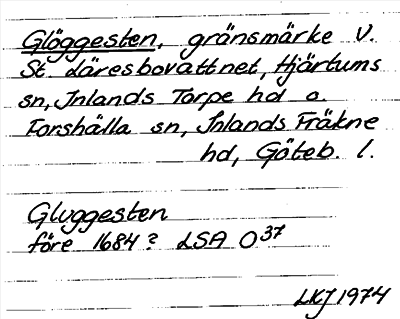 Glöggesten, gränsmärke V.
St. Läresbovattnet, Hjärtums
sn, Inlands Torpe hd o.
Forshälla sn, Inlands Fräkne
hd, Göteb. l.
Gluggesten
före 1684? LSA O³⁷
LKJ 1974